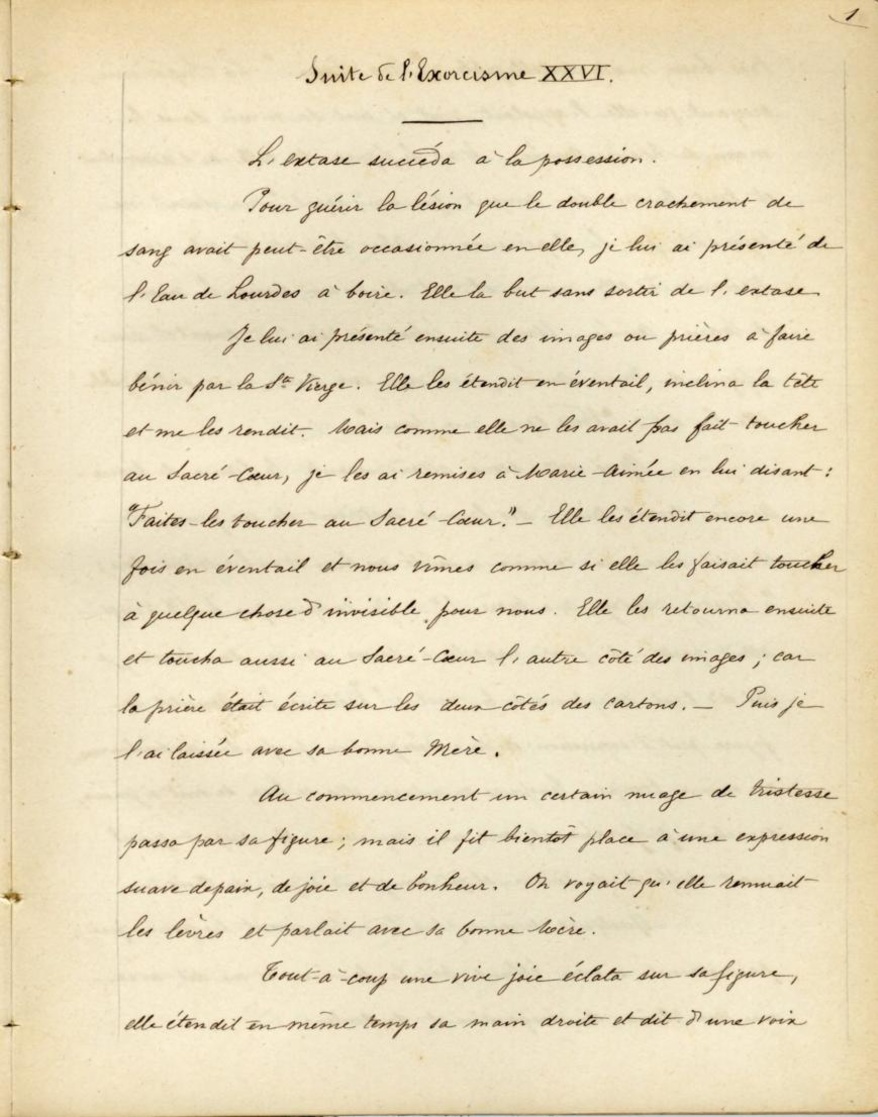 1
Suite de l'Exorcisme XXVI.
L'extase succéda à la possession.
Pour guérir la lésion que le double crachement de
sang avait peut-être occasionnée en elle, je lui ai présenté de
l'Eau de Lourdes à boire. Elle la but sans sortir de l'extase
Je lui ai présenté ensuite des images ou prières à faire
bénir par la Ste Vierge. Elle les étendit en éventail, inclina la tête
et me les rendit. Mais comme elle ne les avait pas fait toucher
au Sacré-Cœur, je les ai remises à Marie-Aimée en lui disant :
"Faites-les toucher au Sacré-Cœur." — Elle les étendit encore une
fois en éventail et nous vîmes comme si elle les faisait toucher
à quelque chose d'invisible pour nous. Elle les retourna ensuite
et toucha aussi au Sacré-Cœur l'autre côté des images ; car
la prière était écrite sur les deux côtés des cartons. — Puis je
l'ai laissée avec sa bonne Mère.
Au commencement un certain nuage de tristesse
passa par sa figure ; mais il fit bientôt place à une expression
suave de paix, de joie et de bonheur. On voyait qu'elle remuait
les lèvres et parlait avec sa bonne Mère.
Tout-à-coup une vive joie éclata sur sa figure,
elle étendit en même temps sa main droite et dit d'une voix